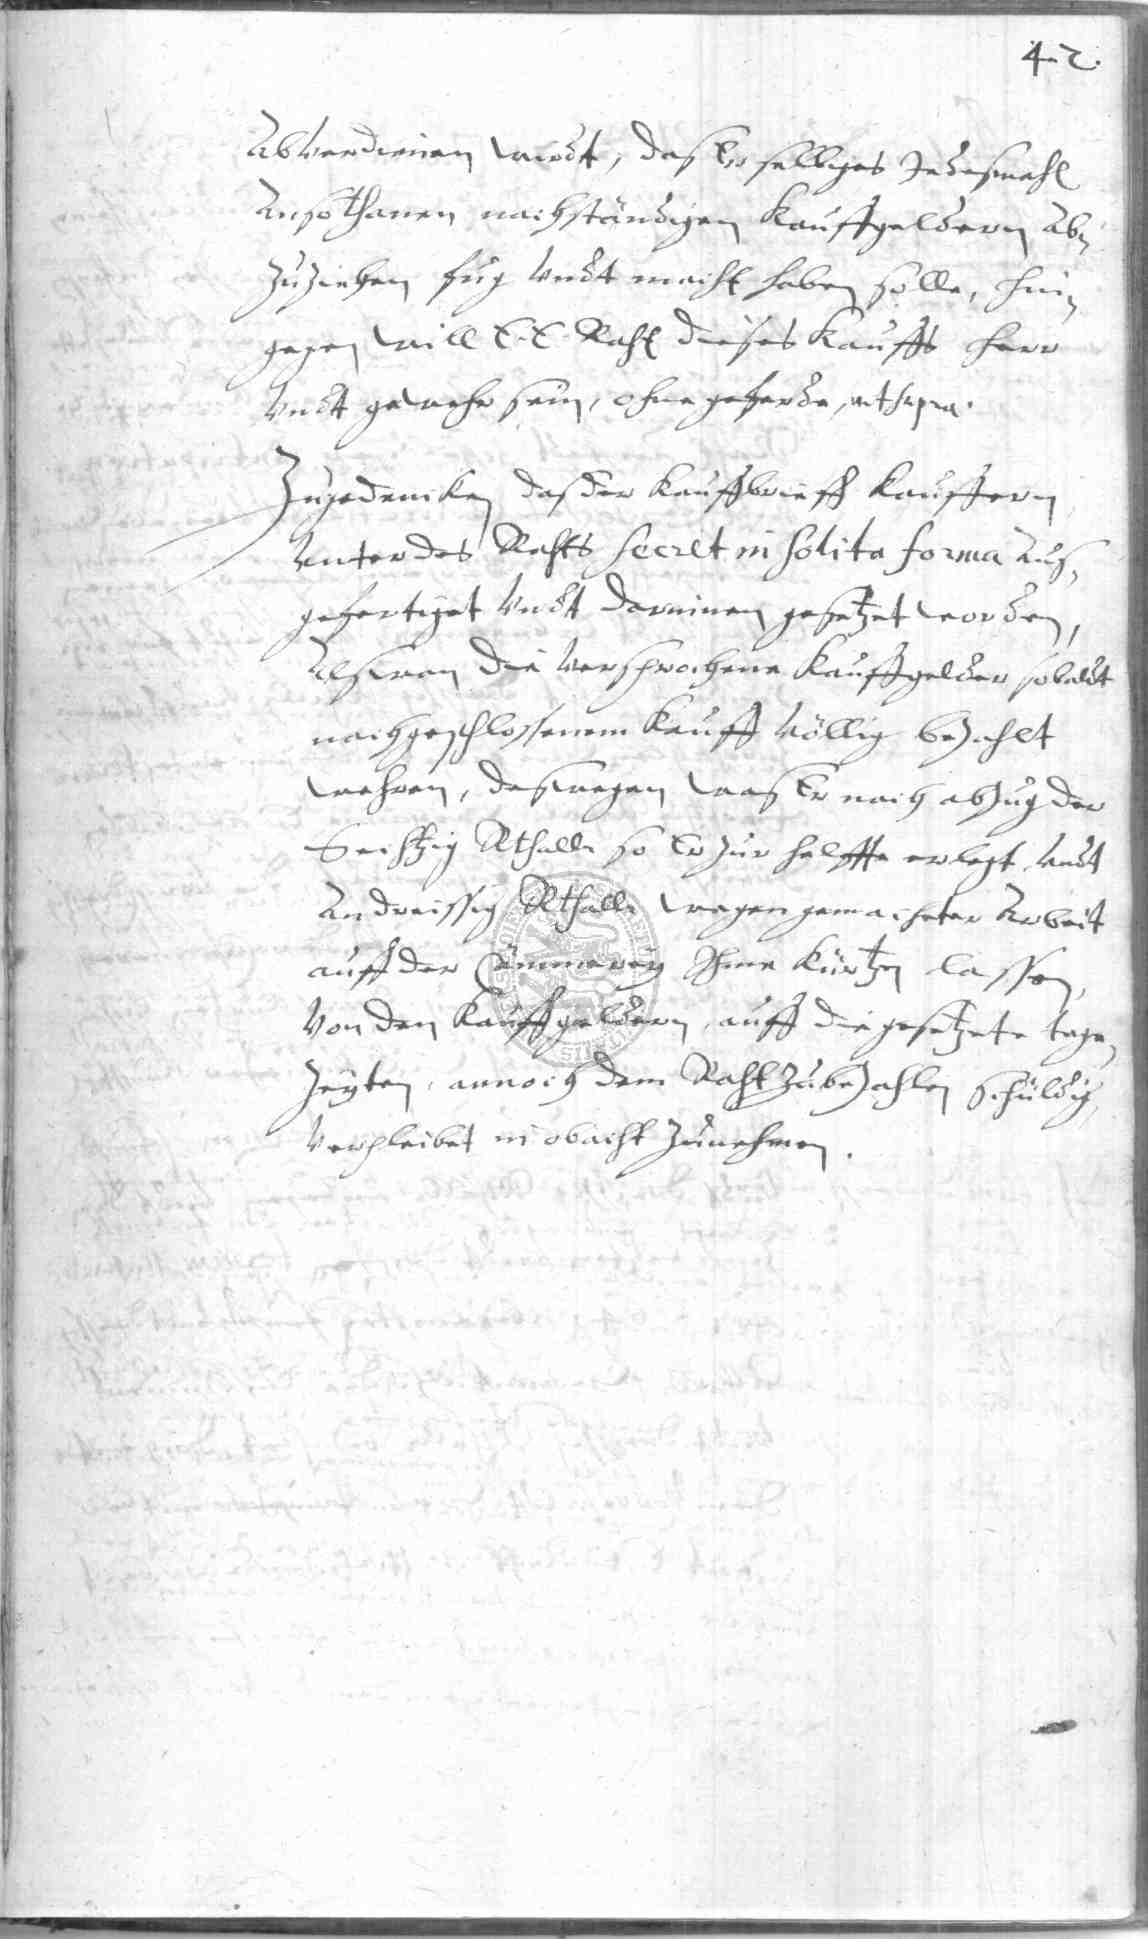 42.
Abverdienen wirdt, das Er selbiges Jedesmahl
An sothanen nachständigen Kauffgeldern Ab,
zuziehen fug Undt macht haben solle, hin,
gegen will E. E. Raht dieses Kauffs Herr
Undt gewehr sein, ohne geferde, ut supra.
Zugedencken das der Kauffbrieff Kauffern
Unter des Rahts Secret in solita forma Auß,
gefertiget Undt darinnen gesetzet worden,
Alß wan die Versprochene Kauffgelder sobaldt
nach geschlossenem Kauff Völlig bezahlt
wehren, deswegen was Er nach abzug der
Sechtzig Rthall. so Er zur helffte erlegt Undt
An dreissig Rthall. wegen gemachter Arbeit
auff der Cämmerey Ihme Kürtzen lassen,
Von den Kauffgeldern, auff die gesetzete tage
Zeyten, annoch dem Raht zubezahlen schüldig
Verpleibet in obacht zunehmen.